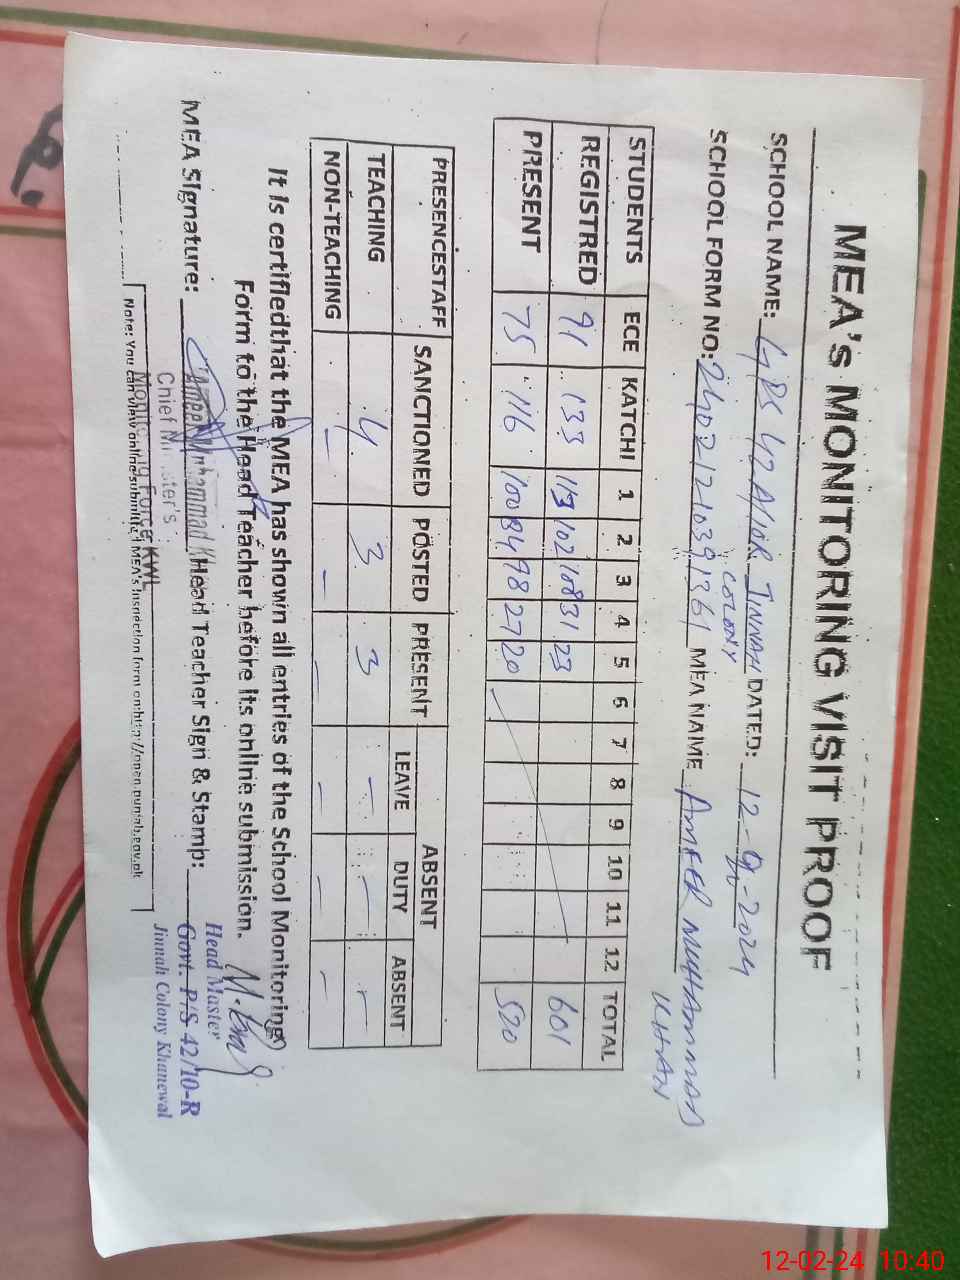 MEA's MONITORING VISIT PROOF
SCHOOL NAME: GPS 42A/10R JINNAH COLONY DATED: 12-02-2024
SCHOOL FORM NO: MEA NAME AMEER MUHAMMAD KHAN
STUDENTS ECE KATCHI 1 2 3 4 5 6 7 8 9 10 11 12 TOTAL
REGISTRED 91 133 113 102 108 31 23 601
PRESENT 75 116 100 84 98 27 20 520
PRESENCESTAFF SANCTIONED POSTED PRESENT ABSENT
LEAVE DUTY ABSENT
TEACHING 4 3 3 - - -
NON-TEACHING - - - - - -
It is certifiedthat the MEA has shown all entries of the School Monitoring
Form to the Head Teacher before its online submission.
MEA Signature: Head Teacher Sign & Stamp:
Ameer Muhammad Khan
Chief Minister's
Monitoring Force KWL
Head Master
Govt. P/S 42/10-R
Jinnah Colony Khanewal
Note: You can view online submitted MEA's Inspection form on http://open.punjab.gov.pk
12-02-24 10:40